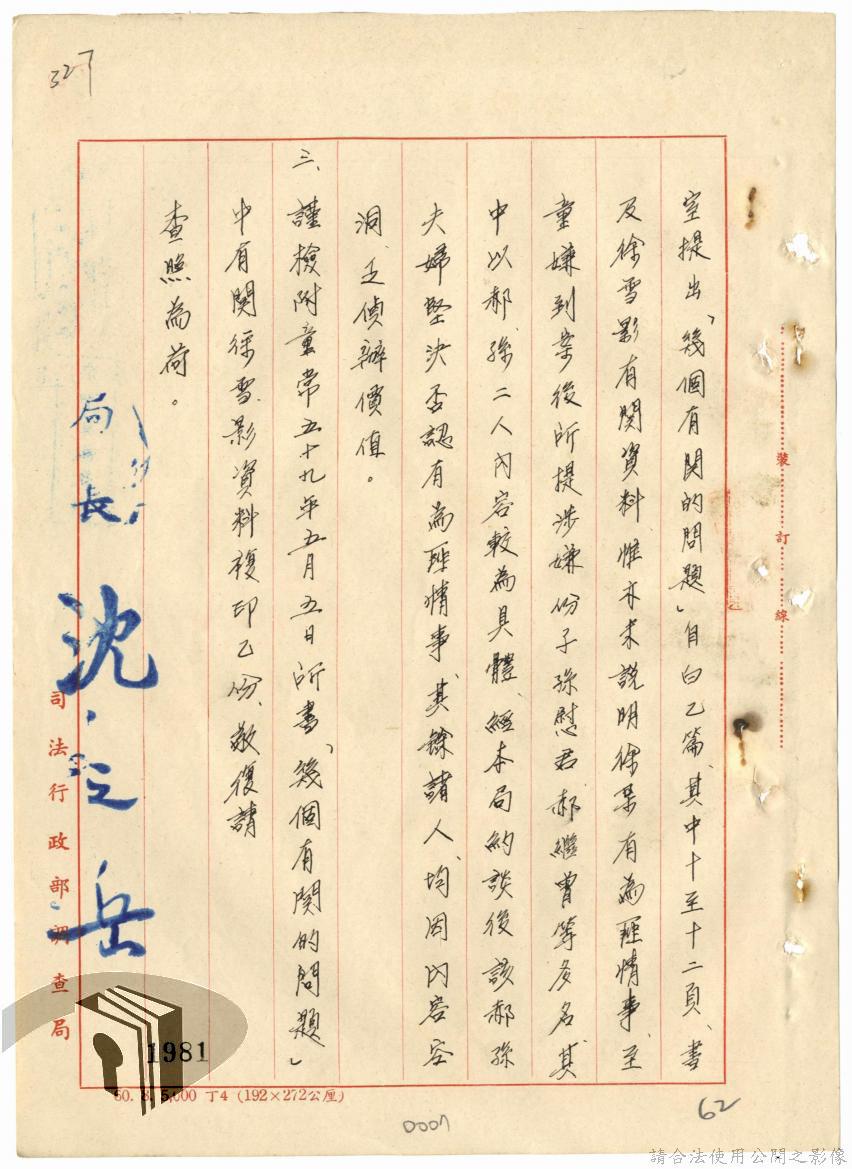 327
室提出「幾個有関的問題」自白乙篇、其中十至十二頁、書
及徐雪影有関資料惟亦未説明徐某有為匪情事、至
童嫌到案後所提涉嫌份子孫慰君、郝繼曾等多名、其
中以郝、孫二人內容較為具體、經本局約談後該郝孫
夫婦堅決否認有為匪情事、其餘諸人、均因內容空
洞、乏偵辦價值。
三、謹檢附童常五十九年五月五日所書「幾個有関的問題」
中有関徐雪影資料複印乙份、敬復請
查照為荷。
局長 沈之岳
裝訂線
司法行政部調查局
1981
60. 8. 5,000 丁4 (192×272公厘)
0007
62
請合法使用公開之影像